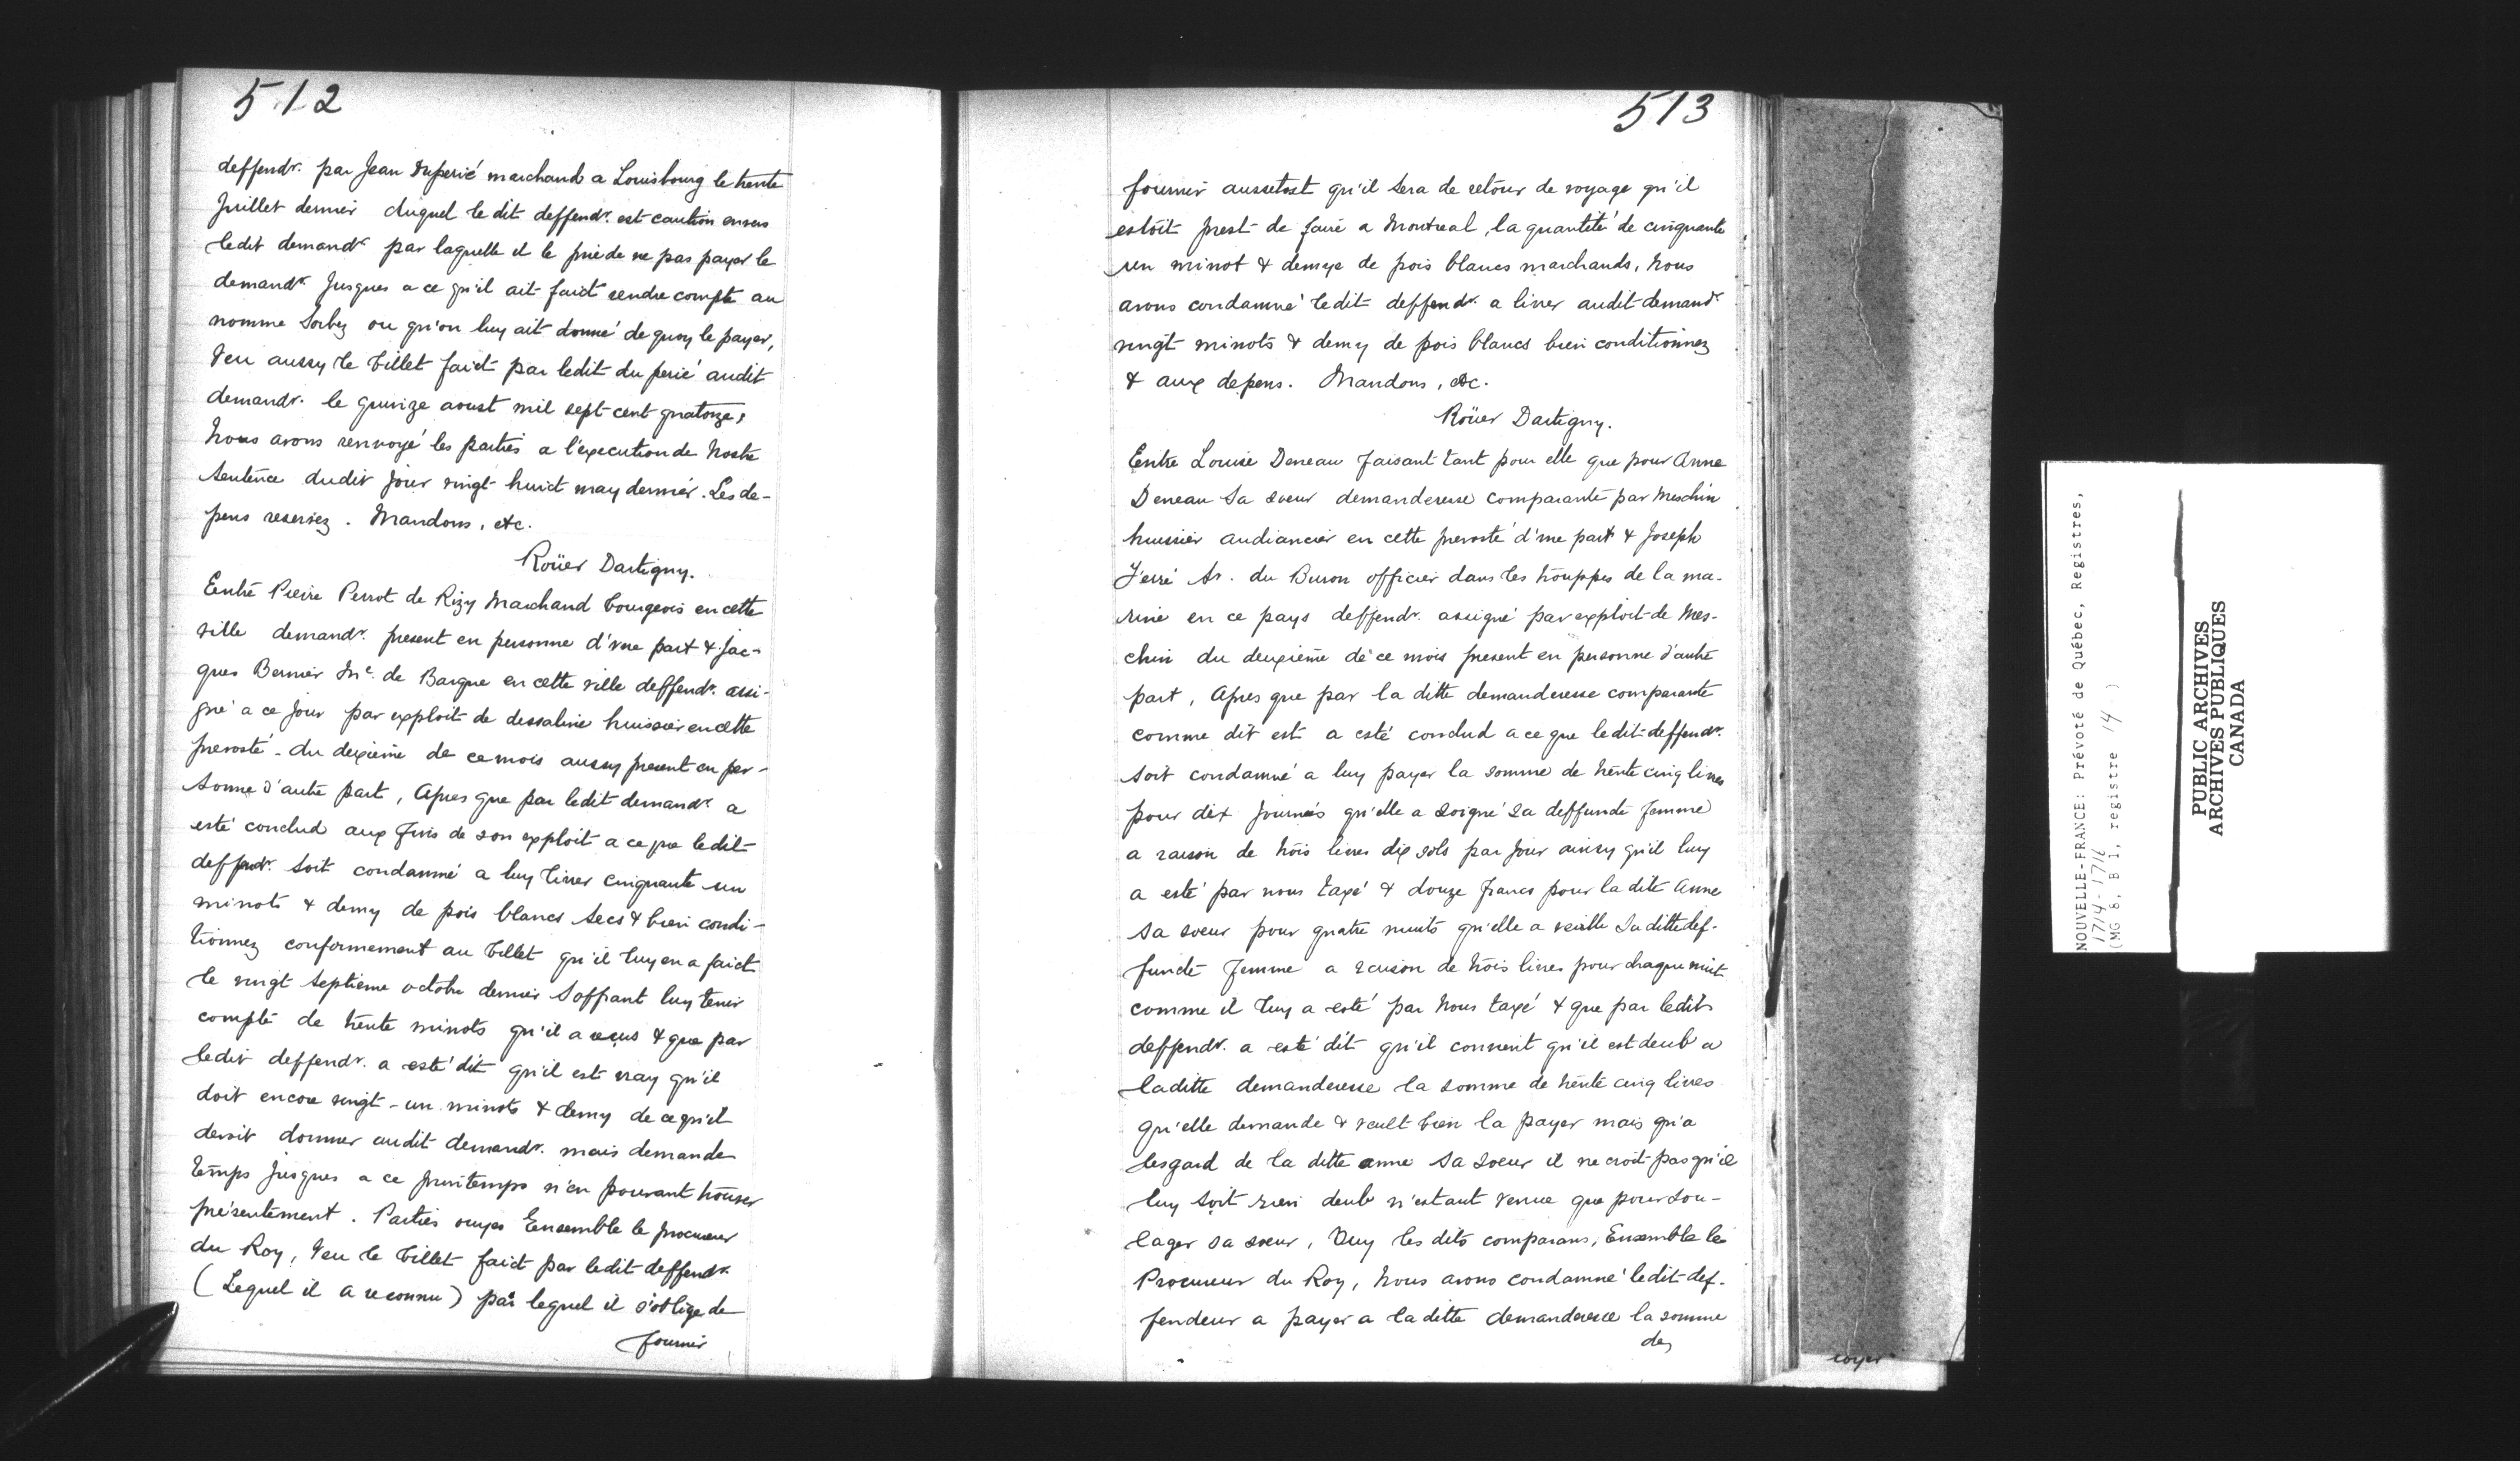 512
deffendr. par Jean Duperié marchand a Louisbourg le trente
Juillet dernier duquel le dit deffendr. est caution envers
ledit demandr. par laquelle il le prie de ne pas payer le
demandr. Jusques a ce qu'il ait faict rendre compte au
nomme Sorbez ou qu'on luy ait donné de quoy le payer,
Veu aussy le billet faict par ledit du perié audit
demandr. le quinze aoust mil sept cent quatorze,
Nous avons renvoyé les parties a l'execution de Nostre
Sentence dudit Jour vingt huict may dernier. Les de-
pens reservez. Mandons, etc.
Roüer Dartigny.
Entre Pierre Perrot de Rizy Marchand bourgeois en cette
ville demandr. present en personne d'vne part & Jac-
ques Bernier Me. de Barque en cette ville deffendr. assi-
gné a ce Jour par exploit de dessaline huissier en cette
prevosté du deuxième de ce mois aussy present en per-
Sonne d'autre part, Apres que par ledit demandr. a
esté conclud aux fins de son exploit a ce que ledit
deffendr. soit condamné a luy livrer cinquante un
minots & demy de pois blancs secs & bien condi-
tionnez conformement au billet qu'il luy en a faict
le vingt septieme octobre dernier s'offrant luy tenir
compte de trente minots qu'il a reçus & que par
ledit deffendr. a esté dit qu'il est vray qu'il
doit encore vingt-un minots & demy de ce qu'il
devoit donner audit demandr. mais demande
temps Jusques a ce printemps n'en pouvant trouver
présentement. Parties ouyes Ensemble le procureur
du Roy, Veu le billet faict par ledit deffendr.
(Lequel il a reconnu) par lequel il s'oblige de
fournir
513
fournir aussetost qu'il sera de retour de voyage qu'il
estoit prest de faire a Montreal, la quantité de cinquante
un minot & demye de pois blancs marchands, Nous
avons condamné ledit deffendr. a livrer audit demandr.
vingt minots & demy de pois blancs bien conditionnez
& aux depens. Mandons, etc.
Roüer Dartigny.
Entre Louise Deneau faisant tant pour elle que pour Anne
Deneau Sa soeur demanderesse comparante par Meschin
huissier audiancier en cette prevosté d'une part & Joseph
Sr. du Buron officier dans les trouppes de la ma-
rine en ce pays deffendr. assigné par exploit de Mes-
chin du deuxième de ce mois present en personne d'autre
part, Apres que par la ditte demanderesse comparante
comme dit est a esté conclud a ce que ledit deffendr.
soit condamné a luy payer la somme de trente cinq livres
pour dix Journées qu'elle a soigné sa deffunde femme
a raison de trois livres dix sols par Jour ainsy qu'il luy
a esté par nous taxé & douze francs pour la dite Anne
sa soeur pour quatre nuits qu'elle a veille Sa ditte def-
funde femme a raison de trois livres pour chaque nuit
comme il luy a esté par Nous taxé & que par ledit
deffendr. a esté dit qu'il convient qu'il est deub a
laditte demanderesse la somme de trente cinq livres
qu'elle demande & veult bien la payer mais qu'a
lesgard de la ditte anne sa soeur il ne croit pas qu'il
luy soit rien deub n'estant venue que pour sou-
lager sa soeur, Ouy les dits comparans, Ensemble le
Procureur du Roy, Nous avons condamné ledit def-
fendeur a payer a laditte demanderesse la somme
de
NOUVELLE-FRANCE: Prévoté de Québec, Registres,
1714-1716
(MG 8, B 1, registre 14 )
PUBLIC ARCHIVES
ARCHIVES PUBLIQUES
CANADA